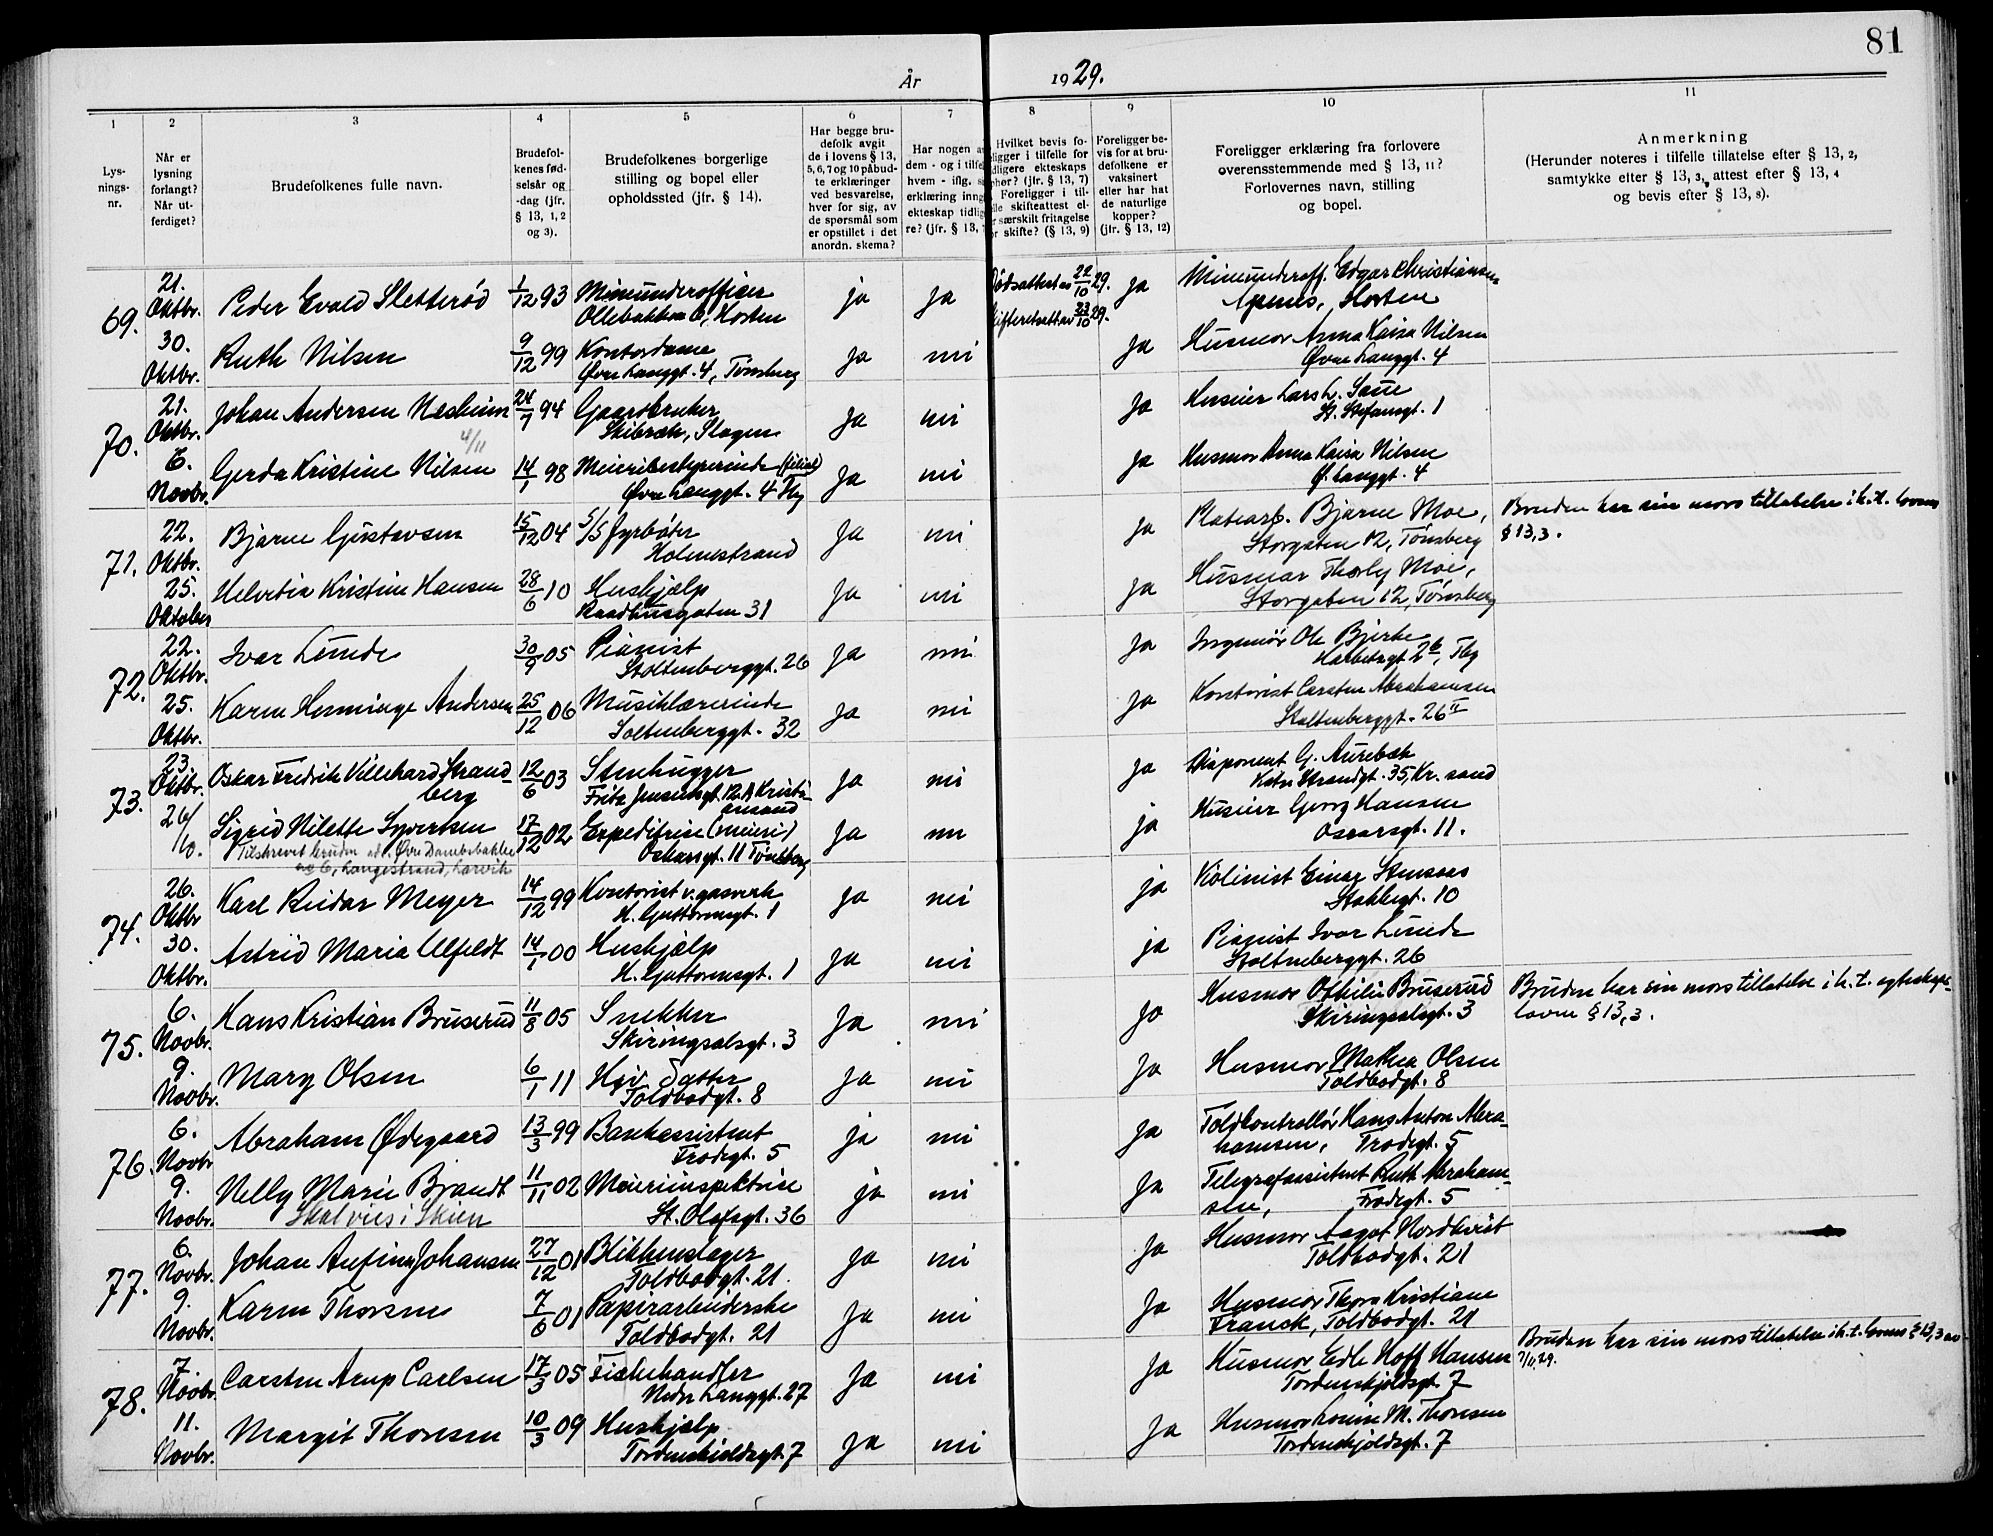 81
År 1929.
1 2 3 4 5 6 7 8 9 10 11
Lys-
nings-
nr.
Når er
lysning
forlangt?
Når ut-
ferdiget?
Brudefolkenes fulle navn.
Brudefol-
kenes fød-
selsår og
-dag (jfr.
§ 13, 1, 2
og 3).
Brudefolkenes borgerlige
stilling og bopel eller
opholdssted (jfr. § 14).
Har begge bru-
defolk avgit
de i lovens § 13,
5, 6, 7 og 10 påbud-
te erklæringer
ved besvarelse,
hver for sig, av
de spørsmål som
er opstillet i det
anordn. skema?
Har nogen a
dem - og i tilfe
hvem - iflg. s
erklæring inng
ekteskap tidlig
re? (jfr. § 13,
Hvilket bevis fo-
ligger i tilfelle for
dligere ekteskaps
phør? (jfr. § 13, 7)
Foreligger i til-
lle skifteattest el-
r særskilt fritagelse
or skifte? (§ 13, 9)
Foreligger be-
vis for at bru-
defolkene er
vaksinert
eller har hat
de naturlige
kopper?
(jfr. § 13, 12)
Foreligger erklæring fra forlovere
overensstemmende med § 13, 11?
Forlovernes navn, stilling
og bopel.
Anmerkning
(Herunder noteres i tilfelle tillatelse efter § 13, 2,
samtykke efter § 13, 3, attest efter § 13, 4
og bevis efter § 13, 8).
69. 21. Oktbr. Peder Evald Sletterød 1/12 93 Mineunderofficer
Ollebakken 6, Horten
ja ja Dødsattest av 22/10 29.
Skifteretsatt av 23/10 29.
ja Mineunderoff. Edgar Christiansen
Apenes, Horten
30. Oktbr. Ruth Nilsen 9/12 99 Kontordame
Øvre Langgt. 4, Tønsberg
ja nei ja Husmor Anna Kaisa Nilsen
Øvre Langgt. 4
70. 21. Oktbr. Johan Andersen Nesheim 24/7 94 Gaardbruker
Skibræk, Slagen
ja nei ja Huseier Lars L. Saue
St. Stefansgt. 1
4/11
6. Novbr. Gerda Kristine Nilsen 14/1 98 Meieribestyrerinde (filial)
Øvre Langgt. 4 Tbg
ja nei ja Husmor Anna Kaisa Nilsen
Ø. Langgt. 4
71. 22. Oktbr. Bjarne Gustavsen 15/12 04 S/S fyrbøter
Holmestrand
ja nei ja Platearb. Bjarne Moe,
Storgaten 12, Tønsberg
Bruden har sin mors tillatelse i h.t. lovens
§ 13,3.
25. Oktober Helvetia Kristine Hansen 28/6 10 Hushjælp
Raadhusgaten 31
ja nei ja Husmor Thorly Moe,
Storgaten 12, Tønsberg
72. 22. Oktbr. Ivar Lunde 30/9 05 Pianist
Stoltenberggt. 26
ja nei ja Ingeniør Ole Bjerke
Harbitzgt 2b, Tbg
25. Oktbr. Karen Henninge Andersen 25/12 06 Musiklærerinde
Soltenberggt. 32
ja nei ja Kontorist Carsten Abrahamsen
Stoltenberggt. 26 II
73. 23. Oktbr. Oskar Fredrik Villehard Strand-
berg
12/6 03 Stenhugger
Fritz Jensensgt. 12 A Kristi-
ansand
ja nei ja Disponent G. Aurebæk
Østre Strandgt. 35, Kr. sand
26/10. Sigrid Nilette Syvertsen 17/12 02 Expeditrise (meieri)
Oskarsgt. 11 Tønsberg
ja nei ja Huseier Georg Hansen
Oscarsgt. 11.
Tilskrevet bruden adr. Øvre Dambakken
no 6, Langestrand, Larvik
74. 26. Oktbr Karl Reidar Meyer 14/12 99 Kontorist v. gasverk
H. Guttormsgt. 1
ja nei ja Violinist Einar Stensaas
Stoklegt. 10
30. Oktbr. Astrid Maria Ulfeldt 14/1 00 Hushjælp
H. Guttormsgt. 1
ja nei ja Pianist Ivar Lunde
Stoltenberggt. 26
75. 6. Novbr. Hans Kristian Bruserud 11/8 05 Snekker
Skiringsalsgt. 3
ja nei ja Husmor Othilie Bruserud
Skiringsalsgt. 3
Bruden har sin mors tillatelse i h. t. egteskaps-
loven § 13,3.
9. Novbr. Mary Olsen 6/1 11 Hjv. Datter
Toldbodgt. 8
ja nei ja Husmor Mathea Olsen
Toldbodgt. 8
76. 6. Novbr Abraham Ødegaard 13/3 99 Bankassistent
Frodegt. 5
ja nei ja Toldkontrollør Hans Anton Abra-
hamsen, Frodegt. 5
9. Novbr. Nelly Marie Brandt 11/11 02 Meieriinspektrise
St. Olafsgt. 36
ja nei ja Telegrafassistent Ruth Abraham-
sen, Frodegt. 5
Skal vies i Skien
77. 6. Novbr. Johan Anfinn Johansen 27/12 01 Blikkenslager
Toldbodgt. 21.
ja nei ja Husmor Aagot Nordkvist
Toldbodgt. 21
9. Novbr. Karen Thorsen 7/6 01 Papirarbeiderske
Toldbodgt. 21
ja nei ja Husmor Thora Kristiane
Franck, Toldbodgt. 21
78. 7. Novbr. Carsten Arup Carlsen 17/3 05 Fiskehandler
Nedre Langgt. 27
ja nei ja Husmor Edle Hoff Hansen
Tordenskjoldsgt. 7
Bruden har sin mors tillatelse i h.t. lovens § 13,3 av
7/11, 29.
11. Novbr. Margit Thoresen 10/3 09 Hushjælp
Tordenskioldsgt. 7
ja nei ja Husmor Lovise M. Thoresen
Tordenskjoldsgt. 7